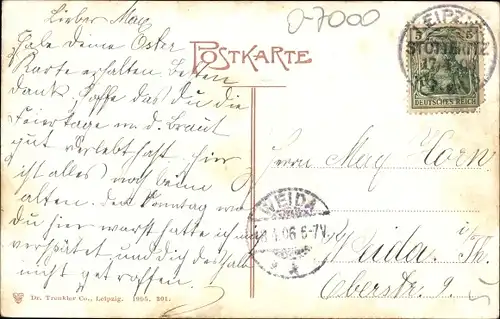 Lieber Max,
Habe deine Oster
Karte erhalten besten
dank, hoffe das du die
Feiertage m. d. Braut
gut verlebt hast, hier
ist alles noch beim
alten. Den Sonntag wo
du hier warst hatte ich mich
verspätet und dich deshalb
nicht getroffen.
0-7000
POSTKARTE
LEIPZIG
STÖTTERITZ
17
5 5
DEUTSCHES REICH
Herrn Max Horn
WEIDA
06 6-7V.
Weida. Th.
Oberstr. 9.
Dr. Trenkler Co., Leipzig. 1905. 201.